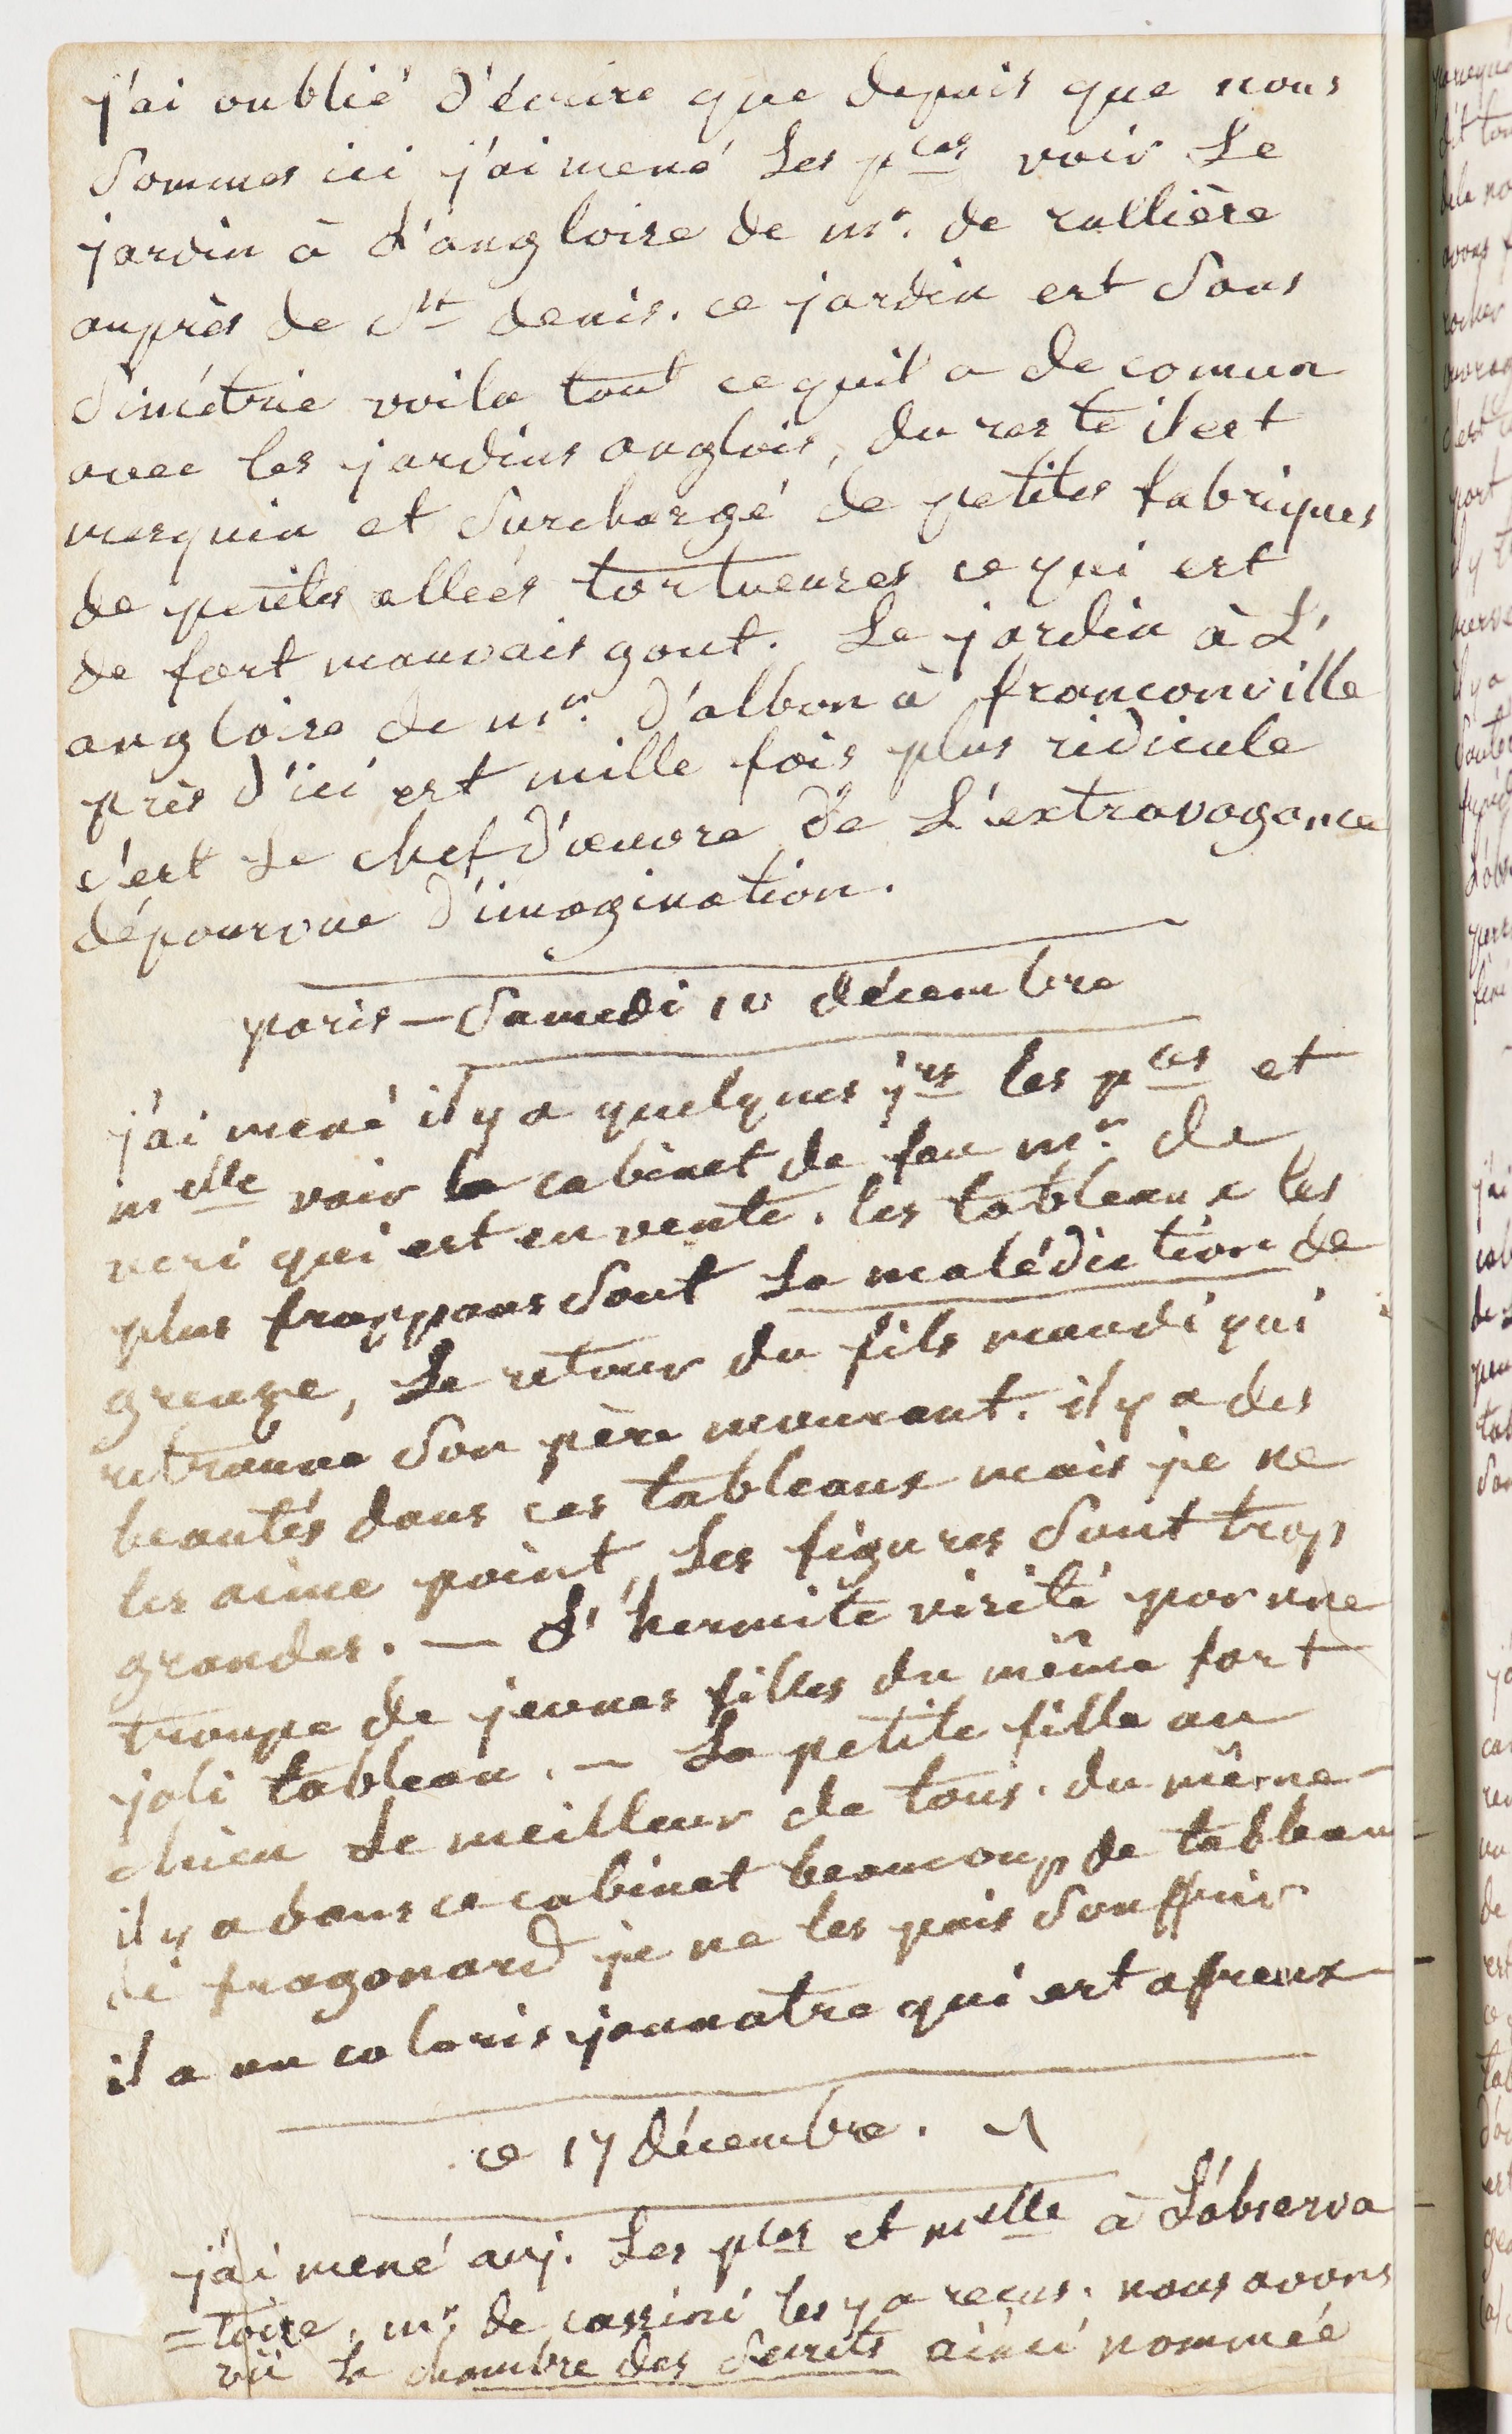 j'ai oublié d'écrire que depuis que nous
sommes ici j'ai mené les pces voir le
jardin à l'angloise de mr. de rallière
auprès de St denis. ce jardin est sans
simétrie voila tout ce quil a de comun
avec les jardins anglois, du reste il est
mesquin et surchargé de petites fabriques
de petites allées tortueuses ce qui est
de fort mauvais gout. Le jardin à L'
angloise de mr. d'albon à franconville
près d'ici est mille fois plus ridicule
c'est le chef d'œuvre de L'extravagance
dépourvue d'imagination.
paris — Samedi 10 décembre
j'ai mené il y a quelques jrs les pces et
melle voir le cabinet de feu mr. de
veri qui est en vente. les tableaux les
plus frappans sont la malédiction de
greuze, Le retour du fils maudi qui
retrouve son père mourant. il y a des
beautés dans ces tableaux mais je ne
les aime point, les figures sont trop
grandes. — L'hermite visité par une
troupe de jeunes filles du même fort
joli tableau. — La petite fille au
chien le meilleur de tous. du même —
il y a dans ce cabinet beaucoup de tableaux
de fragonard je ne les puis souffrir
il a un coloris jaunatre qui est afreux —
ce 17 décembre.
j'ai mené auj. Les pces et melle à L'observa
=toire, mr. de cassini les y a reçus. nous avons
vû la chambre des secrets ainsi nommée